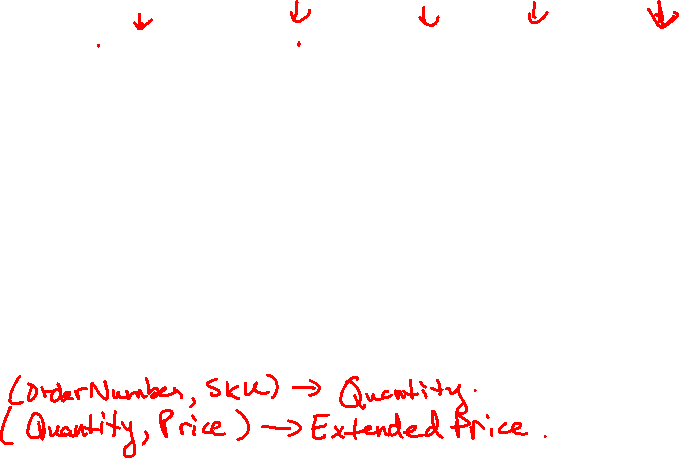 (OrderNumber, SKU) → Quantity.
(Quantity, Price) → Extended Price.